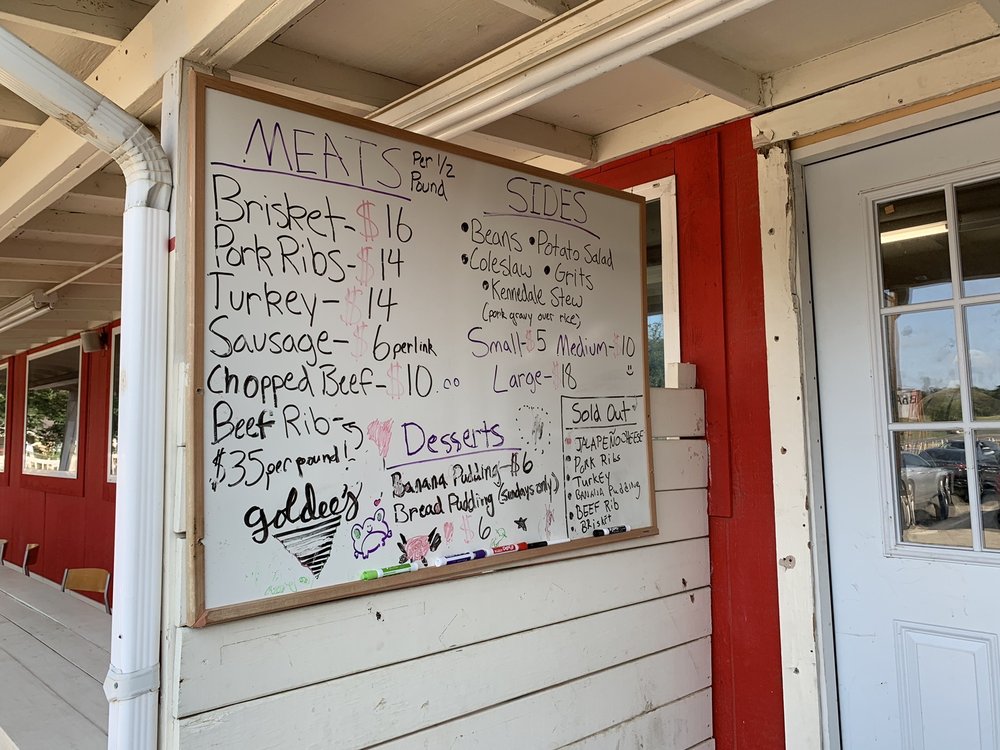 MEATS Per 1/2 Pound
Brisket-$16
Pork Ribs-$14
Turkey-$14
Sausage-$6 per link
Chopped Beef-$10.00
Beef Rib-
$35 per pound!
goldee's
SIDES
• Beans • Potato Salad
• Coleslaw • Grits
• Kennedale Stew
(pork gravy over rice)
Small-$5 Medium-$10
Large-$18
Desserts
Banana Pudding-$6
Bread Pudding (sundays only)
$6
Sold Out
JALAPEÑO-CHEESE
Pork Ribs
Turkey
BANANA Pudding
BEEF Rib
Brisket